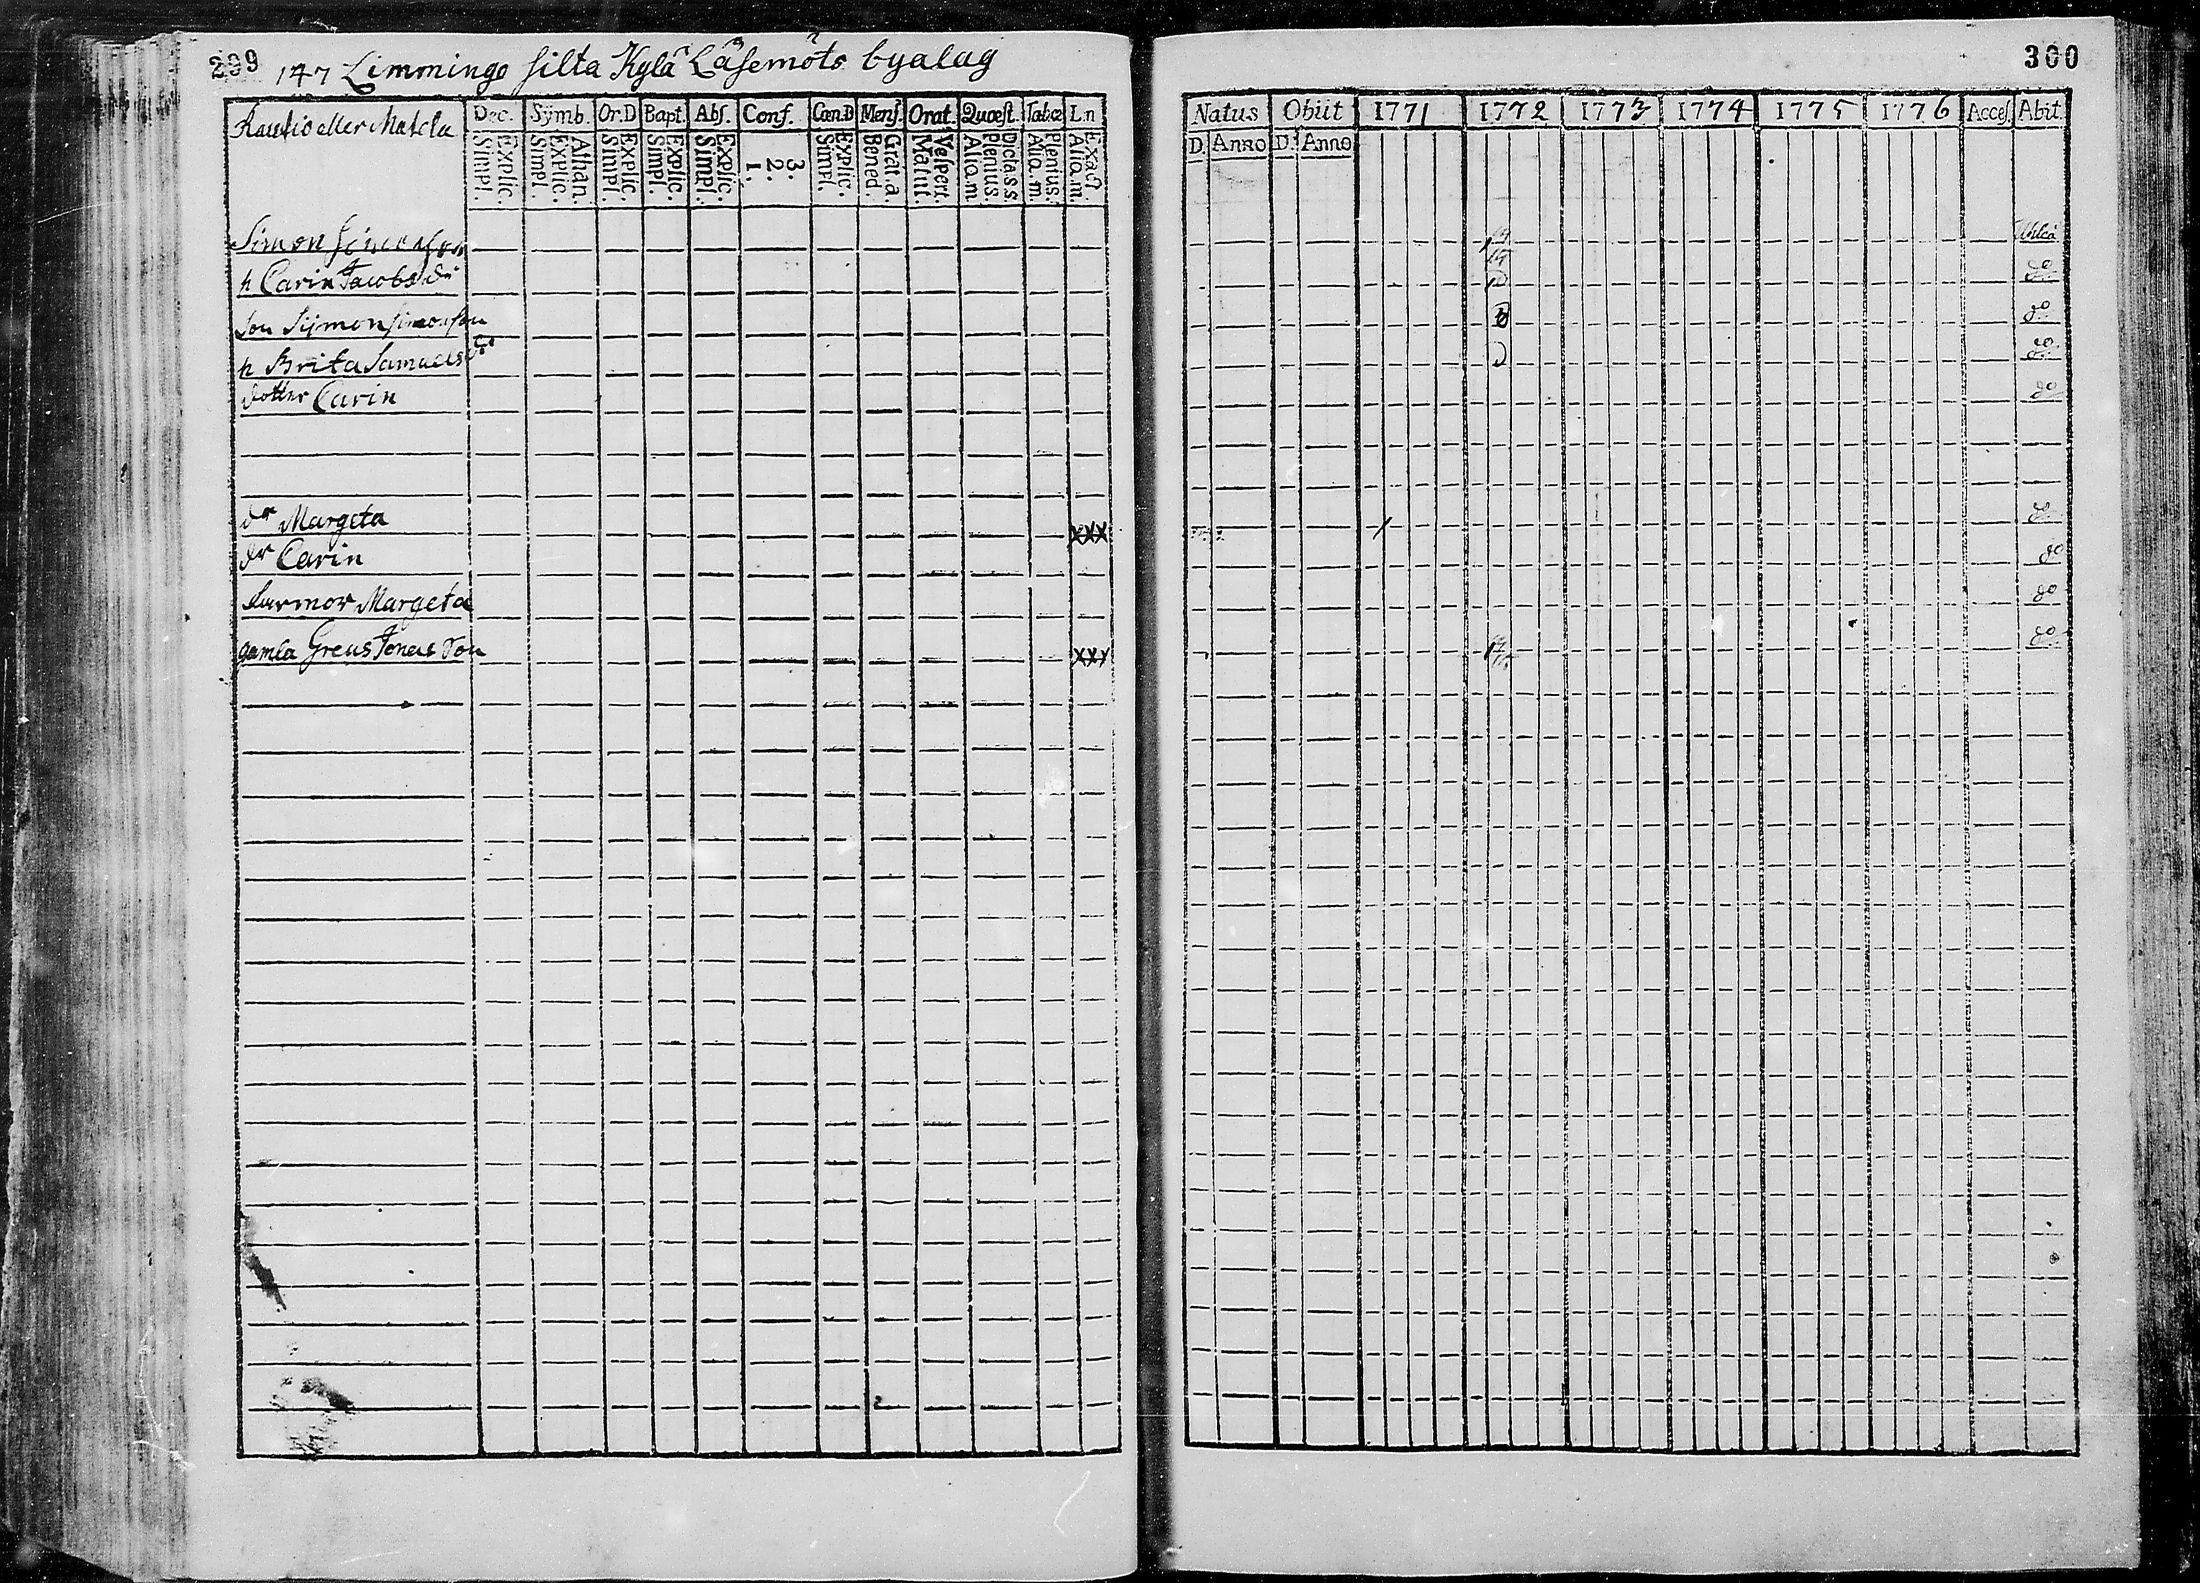 299
147 Limmingo silta Kylä Läsemöts byalag
Rautio eller Matela
Dec. Sÿmb. Or.D Bapt. Abs. Conf. Cœn.D Mens. Orat. Quœst. Tabœ L.n
Explic. Simpl.
Athan. Explic. Simpl.
Explic. Simpl.
Explic. Simpl.
Explic. Simpl.
3. 2. 1.
Explic. Simpl.
Grat.a. Bened.
Vespert. Matut.
Dict.s.s. Plenius. Alia.m.
Plenius. Alia.m.
Exact Alia.m.
Simon Simonson
h Carin Jacobs dr
Son Sijmon Simonson
h Brita Samuels dr
dotter Carin
dr Margeta
xxx
dr Carin
farmor Margeta
gamla Greus Jonas Son
xxx
300
Natus Obiit 1771 1772 1773 1774 1775 1776 Acces. Abit.
D. Anno D. Anno
do
do
do
do
do
do
do
do